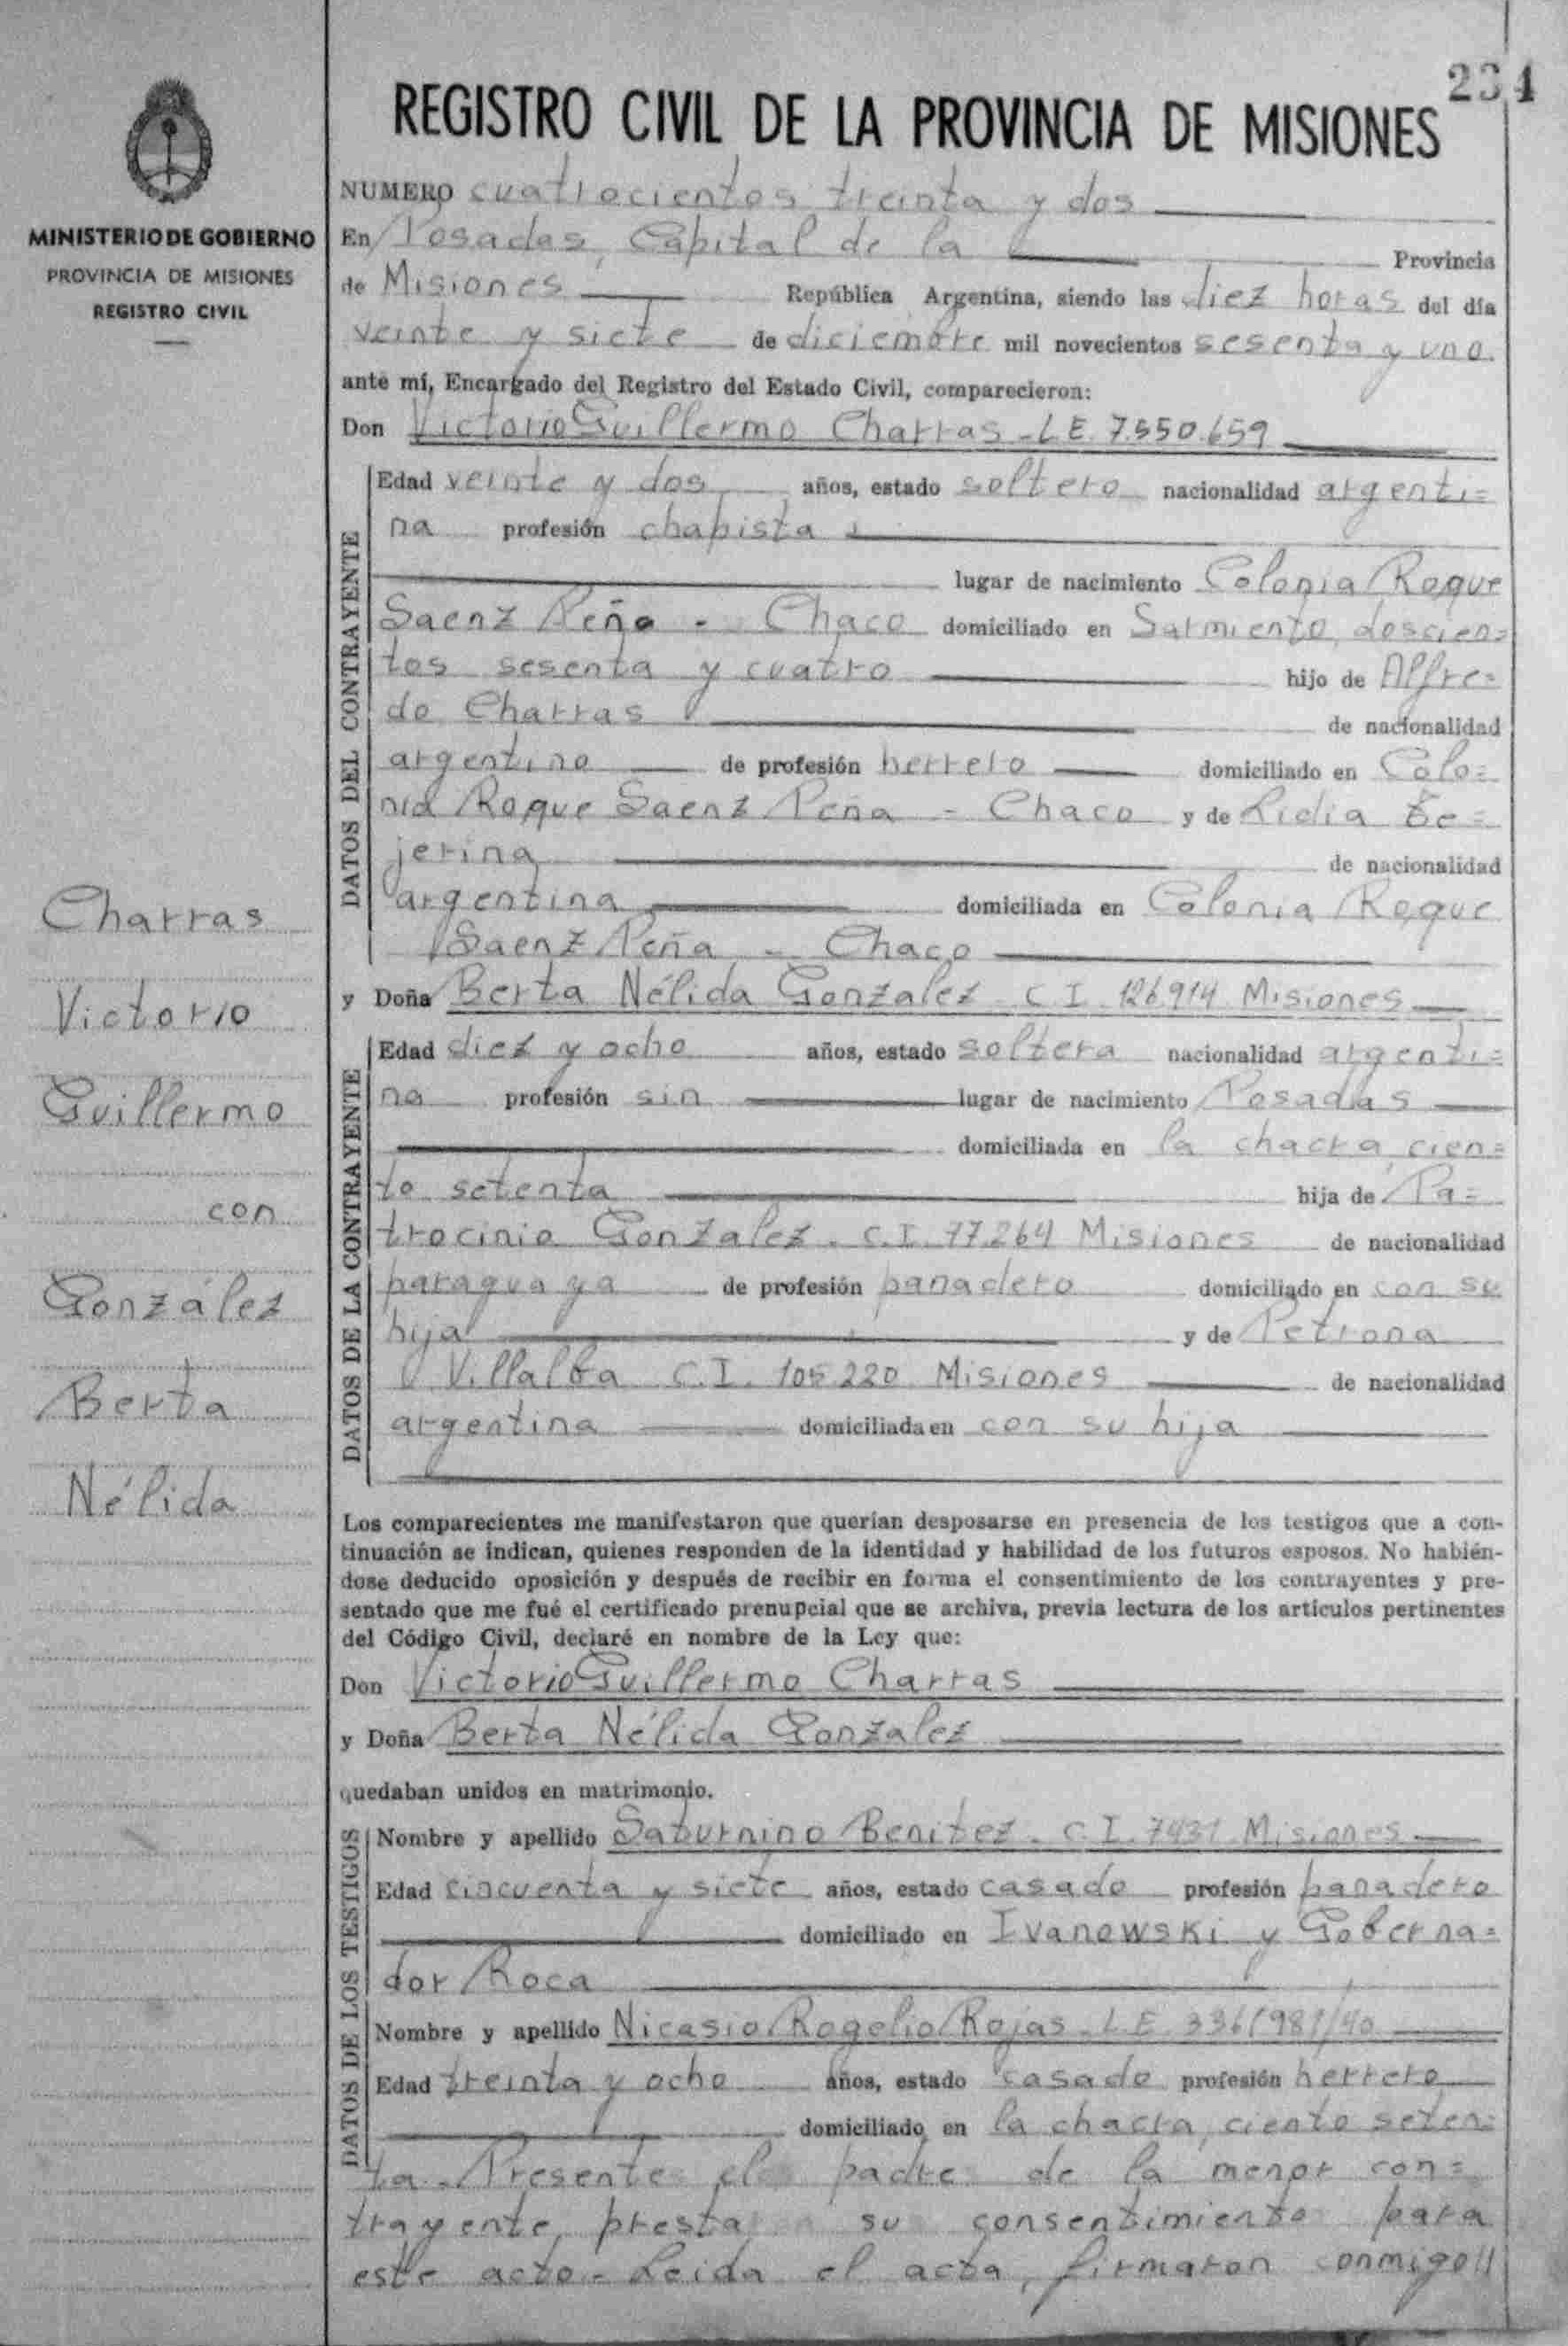 234
REGISTRO CIVIL DE LA PROVINCIA DE MISIONES
MINISTERIO DE GOBIERNO
PROVINCIA DE MISIONES
REGISTRO CIVIL
Charras
Victorio
Guillermo
con
González
Berta
Nélida
NUMERO cuatrocientos treinta y dos
En Posadas, Capital de la Provincia
de Misiones República Argentina, siendo las diez horas del día
veinte y siete de diciembre mil novecientos sesenta y uno
ante mí, Encargado del Registro del Estado Civil, comparecieron:
Don Victorio Guillermo Charras - L E. 7.550.659
DATOS DEL CONTRAYENTE
Edad veinte y dos años, estado soltero nacionalidad argenti=
na profesión chapista
lugar de nacimiento Colonia Roque
Saenz Peña - Chaco domiciliado en Sarmiento doscien=
tos sesenta y cuatro hijo de Alfre=
do Charras de nacionalidad
argentino de profesión herrero domiciliado en Colo=
nia Roque Saenz Peña - Chaco y de Lidia Te=
jerina de nacionalidad
argentina domiciliada en Colonia Roque
Saenz Peña - Chaco
y Doña Berta Nélida Gonzalez C I 126914 Misiones
DATOS DE LA CONTRAYENTE
Edad diez y ocho años, estado soltera nacionalidad argenti=
na profesión sin lugar de nacimiento Posadas
domiciliada en la chacra cien=
to setenta hija de Pa=
trocinio Gonzalez. C.I. 77.264 Misiones de nacionalidad
paraguaya de profesión panadero domiciliado en con su
hija y de Petrona
Villalba C.I. 105.220 Misiones de nacionalidad
argentina domiciliada en con su hija
Los comparecientes me manifestaron que querían desposarse en presencia de los testigos que a con-
tinuación se indican, quienes responden de la identidad y habilidad de los futuros esposos. No habién-
dose deducido oposición y después de recibir en forma el consentimiento de los contrayentes y pre-
sentado que me fué el certificado prenupcial que se archiva, previa lectura de los artículos pertinentes
del Código Civil, declaré en nombre de la Ley que:
Don Victorio Guillermo Charras
y Doña Berta Nélida Gonzalez
quedaban unidos en matrimonio.
DATOS DE LOS TESTIGOS
Nombre y apellido Saturnino Benitez - C.I. 7431 Misiones
Edad cincuenta y siete años, estado casado profesión panadero
domiciliado en Ivanowski y Goberna=
dor Roca
Nombre y apellido Nicasio Rogelio Rojas - L E
Edad treinta y ocho años, estado casado profesión herrero
domiciliado en la chacra, ciento seten=
ta. Presente el padre de la menor con=
trayente, presta su consentimiento para
este acto - Leida el acta, firmaron conmigo//